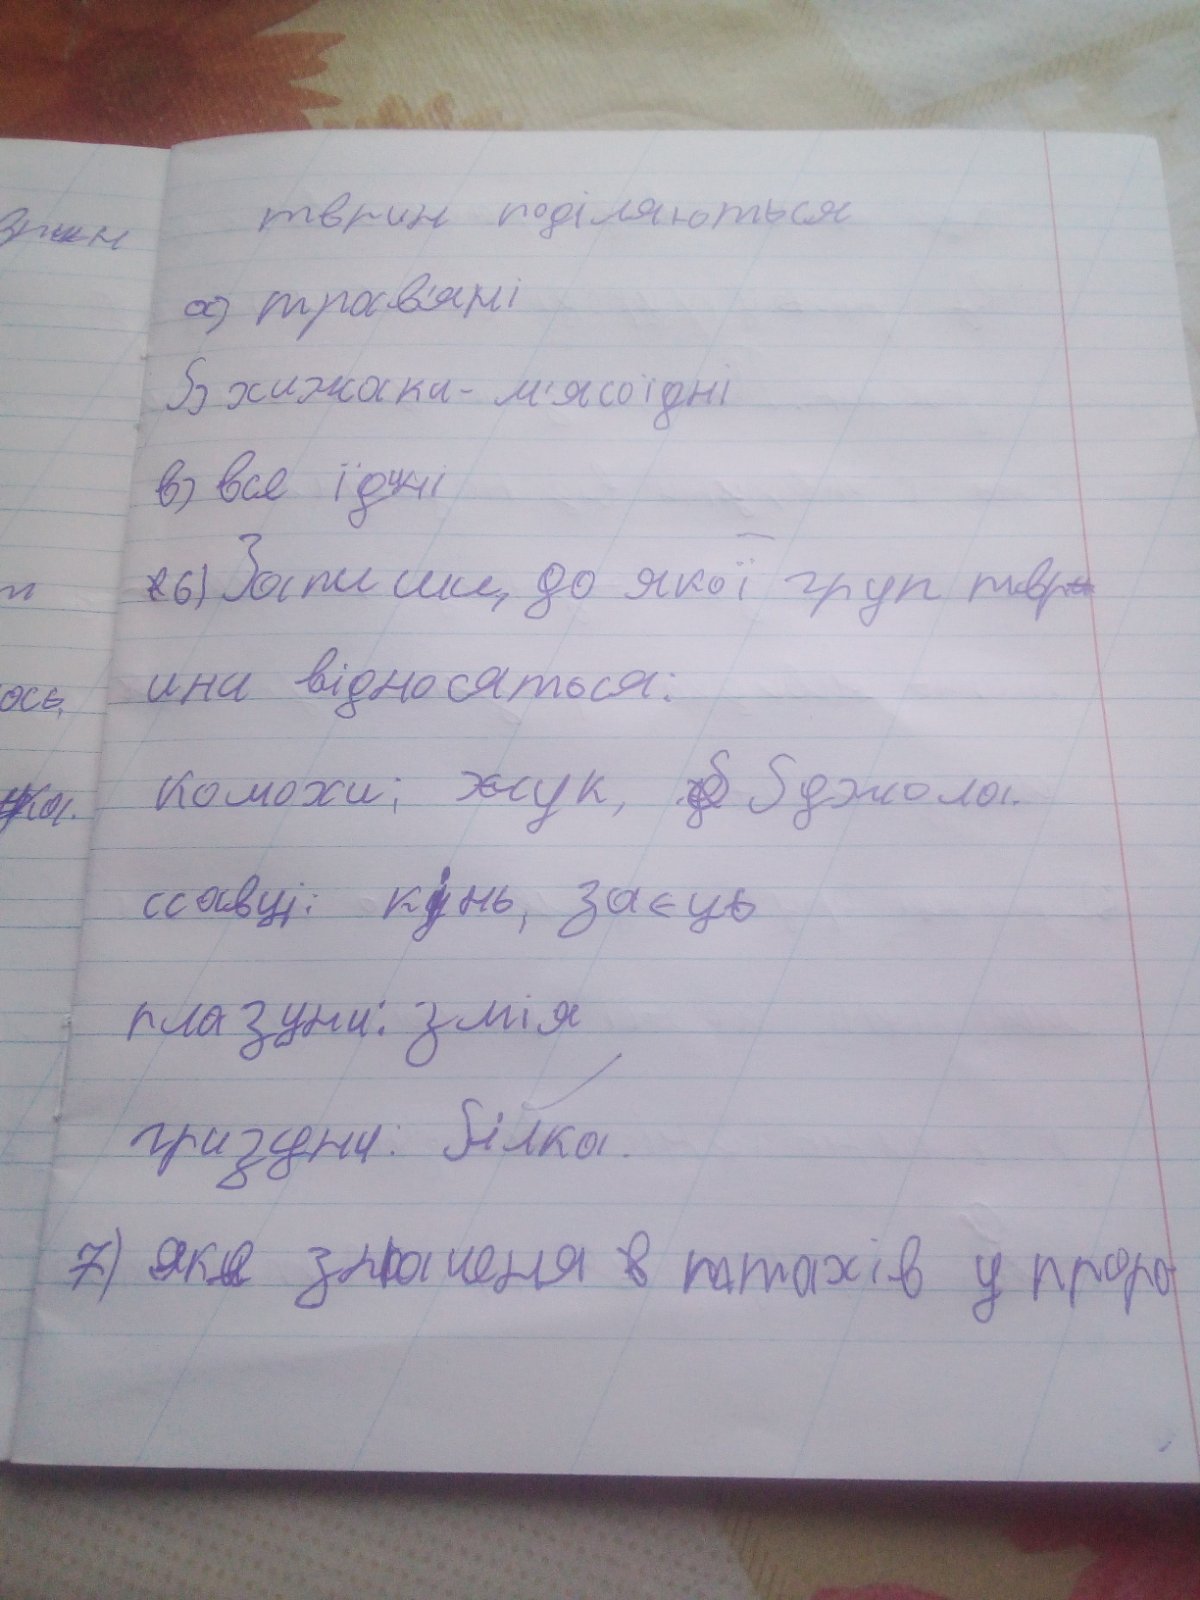 тврин поділяються
а) трав'яні
б) хижаки - м'ясоїдні
в) все їдні
6) Запиши, до якої груп твр
ини відносяться:
комохи; жук, бджола.
ссавці: кінь, заєць
плазуни: змія
гризуни: білка.
7) яке значеня в птахів у приро